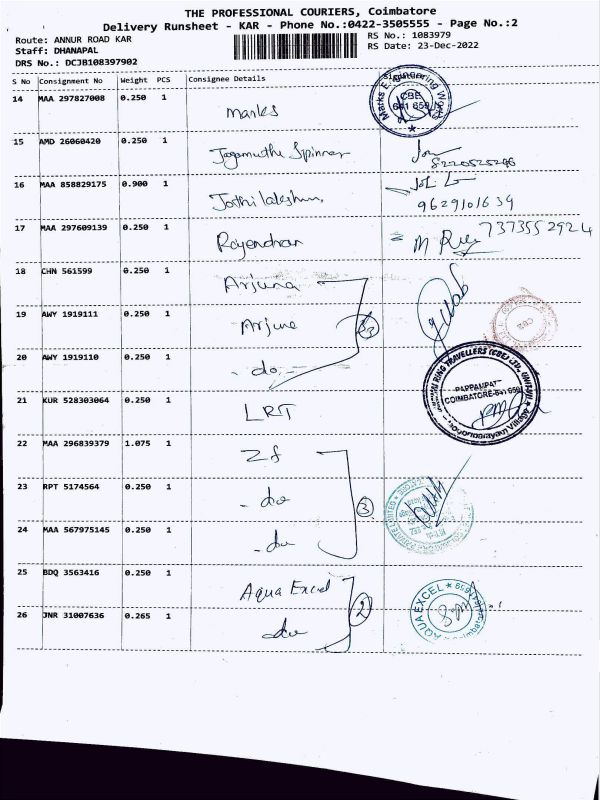 THE PROFESSIONAL COURIERS, Coimbatore
Delivery Runsheet - KAR - Phone No.:0422-3505555 - Page No.:2
Route: ANNUR ROAD KAR
Staff: DHANAPAL
DRS No.: DCJB108397902
RS No.: 1083979
RS Date: 23-Dec-2022
S No Consignment No Weight PCS Consignee Details
14 MAA 297827008 0.250 1 Marks
Marks Engineering Works CBE 641 659
15 AMD 26060420 0.250 1 Jagamuthu Spinner
8220525296
16 MAA 858829175 0.900 1 Jothilakshmi
9629101639
17 MAA 297609139 0.250 1 Rajendran
7373552924
18 CHN 561599 0.250 1 Arjuna
19 AWY 1919111 0.250 1 Arjune
20 AWY 1919110 0.250 1 - do -
21 KUR 528303064 0.250 1 LRT
PAPPAUPAT
COIMBATORE-641 659
22 MAA 296839379 1.075 1 Zf
23 RPT 5174564 0.250 1 - do
3
24 MAA 567975145 0.250 1 - do
25 BDQ 3563416 0.250 1 Aqua Excel
2
AQUA EXCEL
26 JNR 31007636 0.265 1 do